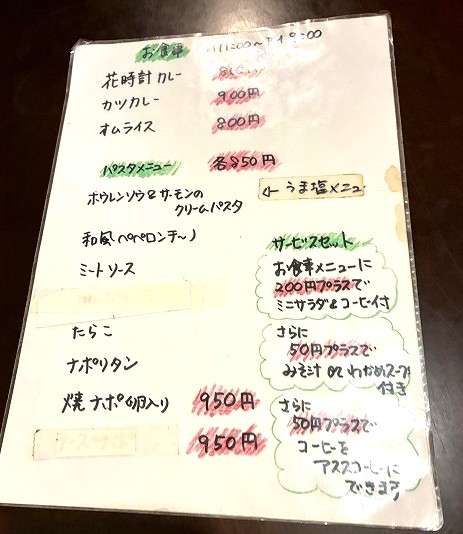 お食事 AM11:00～PM9:00
花時計カレー
カツカレー 900円
オムライス 800円
パスタメニュー 各850円
←うま塩メニュ
ホウレンソウ&サーモンの
クリームパスタ
和風ペペロンチーノ
ミートソース
たらこ
ナポリタン
焼ナポ卵入り 950円
950円
サービスセット
お食事メニューに
200円プラスで
ミニサラダ&コーヒー付
さらに
50円プラスで
みそ汁 or わかめスープ
付き
さらに
50円プラスで
コーヒーを
アイスコーヒーに
できます